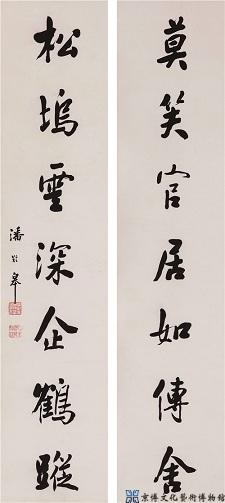 莫笑官居如傳舍
松塢雲深企鶴蹤
潘齡皋
京博文化藝術博物館